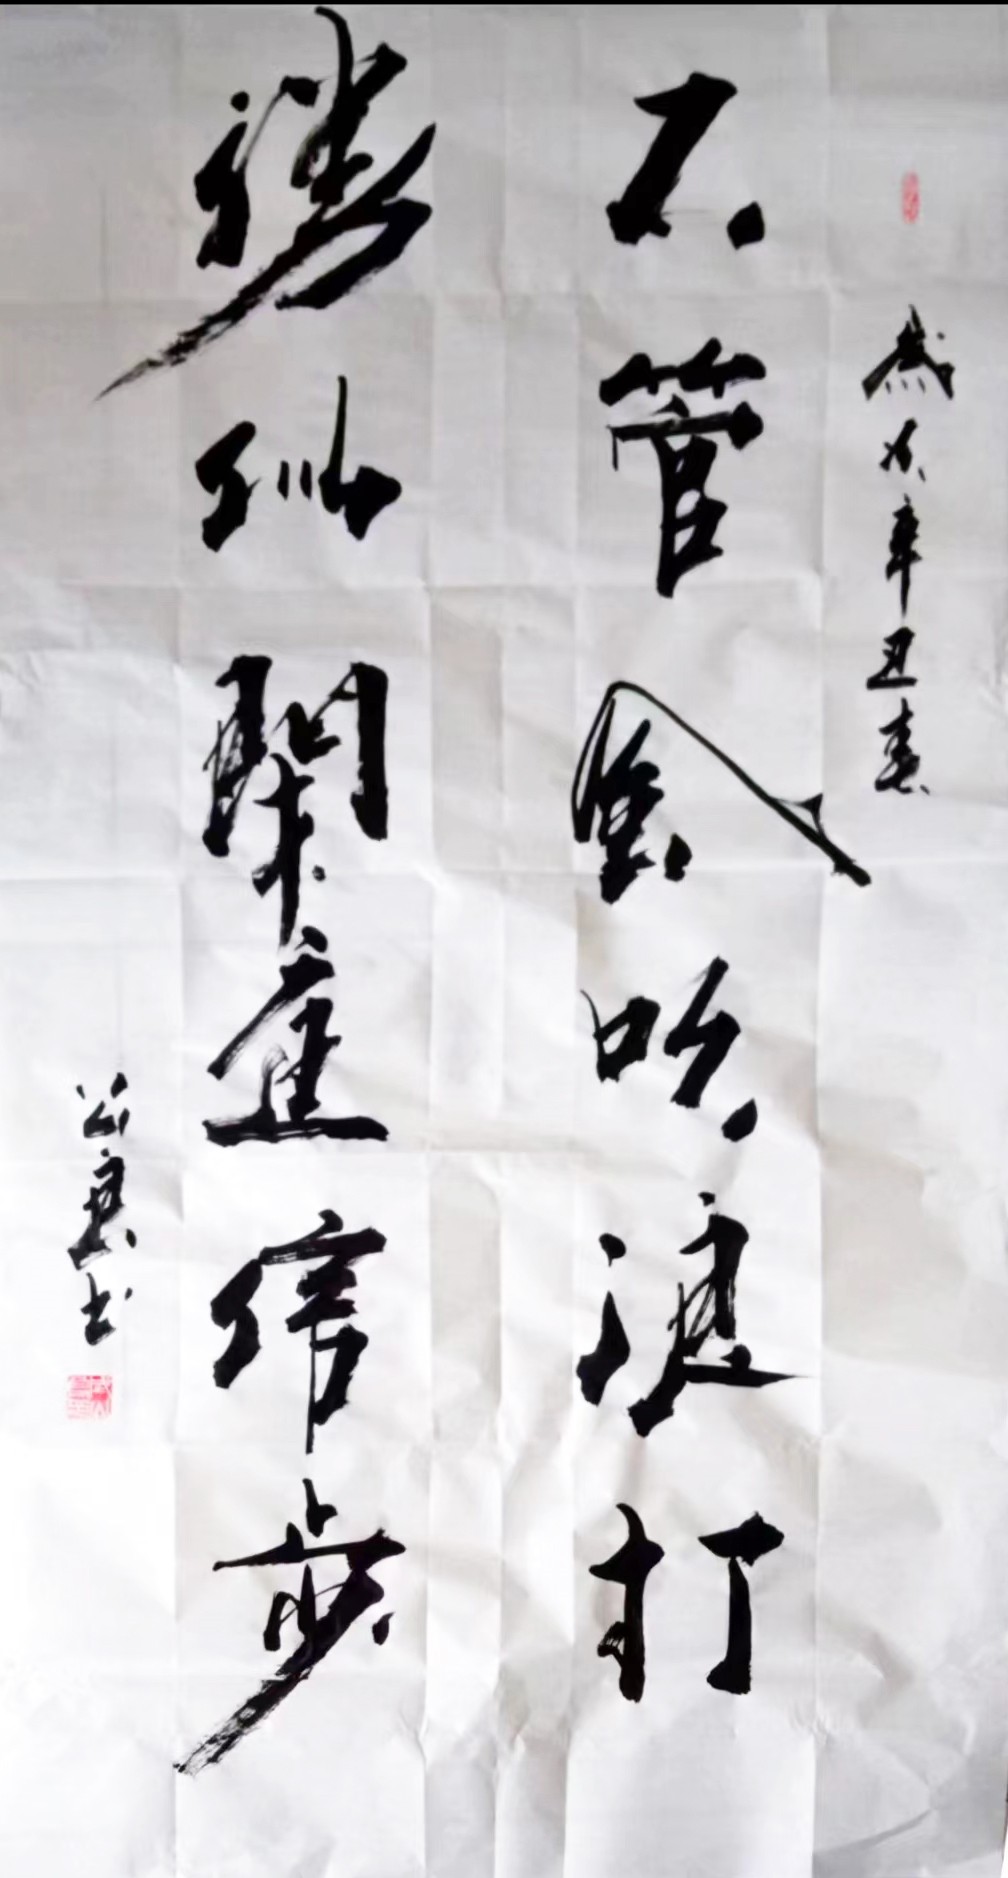 歲次辛丑春
不管風吹浪打
勝似閑庭信步
书